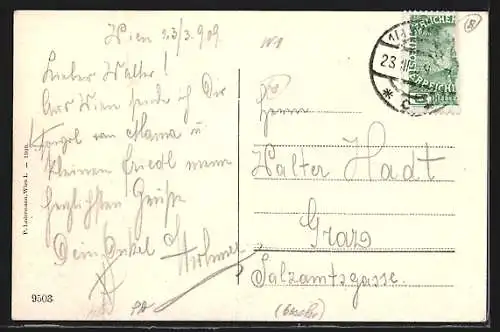 Wien 23/3. 909
Lieber Walter!
Aus Wien sende ich Dir
von Mama u
kleinen Friedl meine
herzlichsten Grüße
Dein Onkel
Herrn
Walter Hadt
Graz
Salzamtsgasse.
P. Ledermann, Wien I. — 1910.
9503
23. III